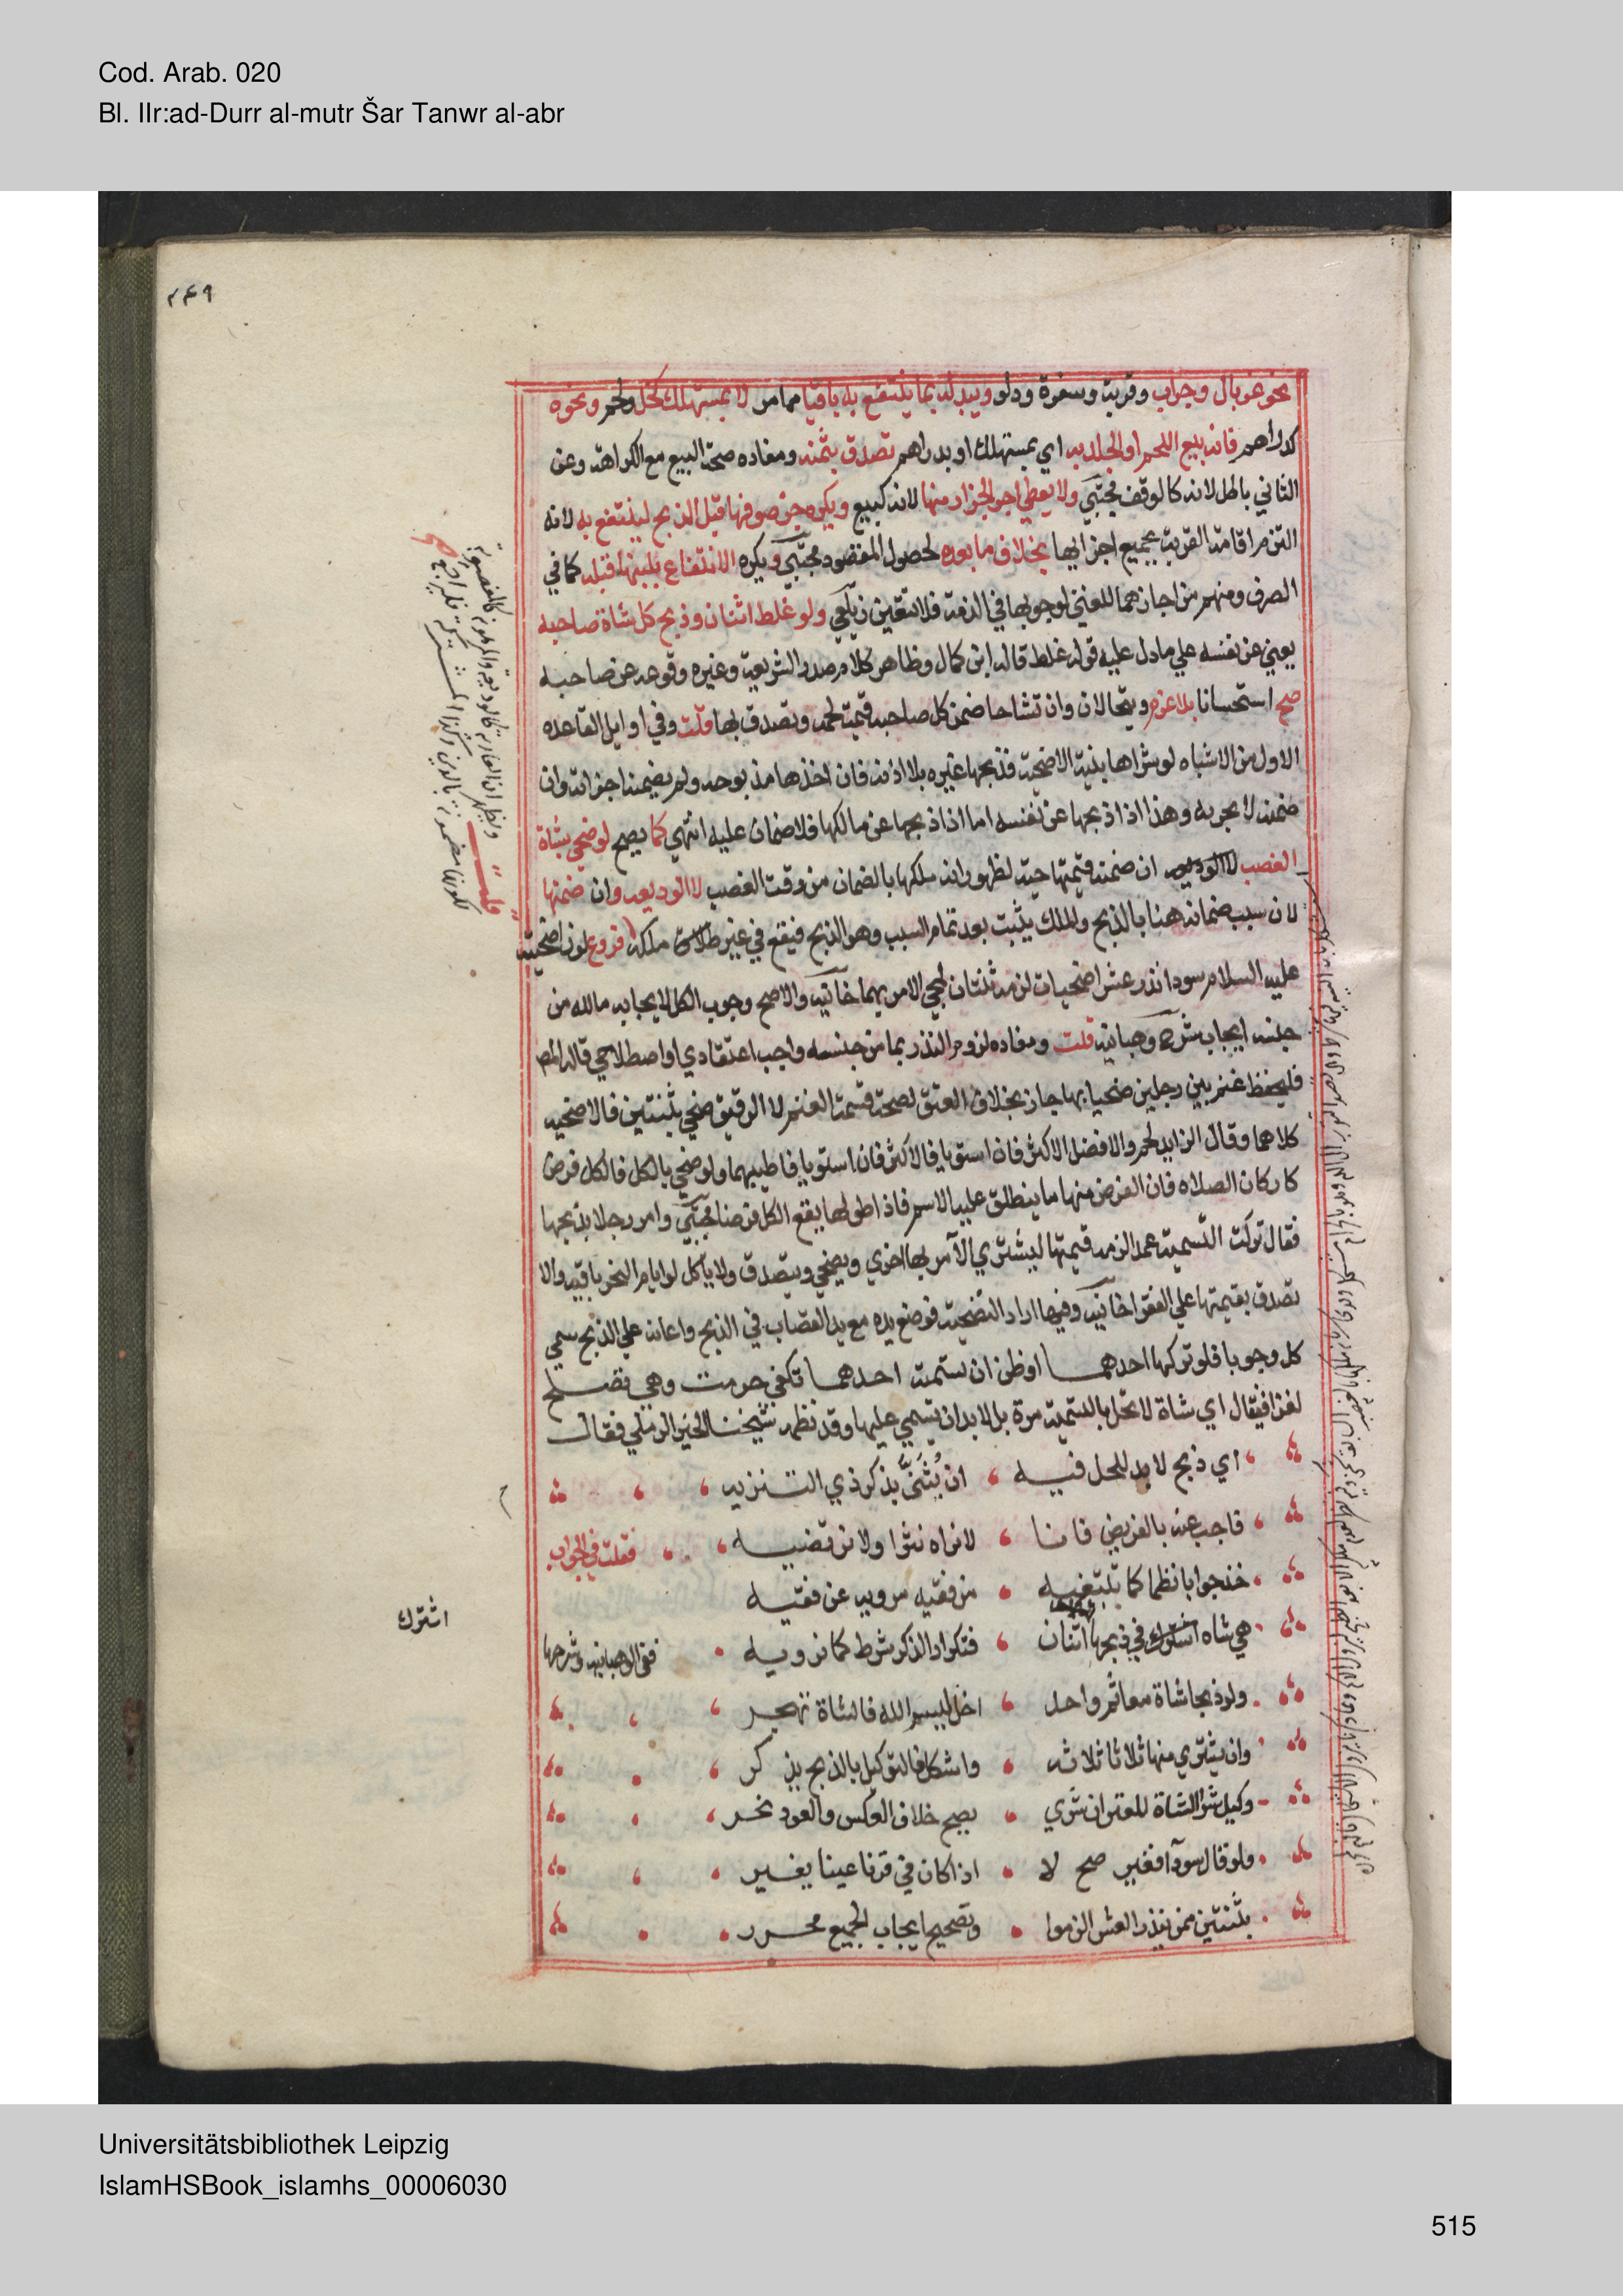 Cod. Arab. 020
Bl. IIr:ad-Durr al-mutr Šar Tanwr al-abr
٢٤٩
نحو غربال وجراب وقربة وسفرة ودلو ويبدله بما ينتفع به باقيا مما مر لا بمستهلك كخل ولحم ونحوه
كدراهم فان بيع اللحم او الجلد به اي بمستهلك او بدراهم تصدق بثمنه ومفاده صحة البيع مع الكراهة وعن
الثاني باطل لانه كالوقف مجتبي ولا يعطي اجر الجزار منها لانه كبيع ويكره جز صوفها قبل الذبح لينتفع به لانه
التزم اقامة القربة بجميع اجزايها بخلاف ما بعده لحصول المقصود مجتبي ويكره الانتفاع بلبنها قبله كما في
الصوف ومنهم من اجازهما للغني لوجوبها في الذمة فلا تتعين زيلعي ولو غلط اثنان وذبح كل شاة صاحبه
يعني عن نفسه علي ما دل عليه قوله غلط قاله ابن كمال وظاهر كلام صدر الشريعة وغيره وقوعه عن صاحبه
صح استحسانا بلا غرم ويتحالان وان تشاحا ضمن كل صاحبه قيمة لحمه وتصدق بها قلت وفي اوايل القاعده
الاولي من الاشباه لو شراها بنية الاضحية فذبحها غيره بلا اذنه فان اخذها مذبوحة ولم يضمنه اجزاته وان
ضمنه لا تجزيه وهذا اذا ذبحها عن نفسه اما اذا ذبحها عن مالكها فلا ضمان عليه انتهي كما يصح لو ضحي بشاة
الغصب لا الوديعه ان ضمنه قيمتها حية لظهور انه ملكها بالضمان من وقت الغصب لا الوديعه وان ضمنها
لان سبب ضمانه هنا بالذبح والملك يثبت بعد تمام السبب وهو الذبح فيقع في غير ملكه فروع لون اضحيته
عليه السلام سودا نذر عشر اضحيات لزمه ثنتان لمجي الامر بهما خانية والاصح وجوب الكل لايجابه ما لله من
جنسه ايجاب شرح وهبانية قلت ومفاده لزوم النذر بما من جنسه واجب اعتقادي او اصطلاحي قاله المص
فليحفظ غنم بين رجلين ضحيا بها جاز بخلاف العتق لصحة قسمة الغنم لا الرقيق ضحي بثنتين فالاضحية
كلاهما وقال الزايد لحم والافضل الاكثر فان استويا فالاكثر فان استويا فاطيبهما ولو ضحي بالكل فالكل فرض
كاركان الصلاه فان الفرض منها ما ينطلق عليه الاسم فاذا اطولها يقع الكل فرضا مجتبي وامر رجلا بذبحها
فقال تركت التسمية عمدا لزمه قيمتها ليشتري الآمر بها اخري ويضحي ويتصدق ولا ياكل لو ايام النحر باقية والا
تصدق بقيمتها علي الفقرا خانية وفيها اراد التضحية فوضع يده مع يد القصاب في الذبح واعانه علي الذبح سمي
كل وجوبا فلو تركها احدهما او ظن ان تسمية احدهما تكفي حرمت وهي تصلح
لغزا فيقال اي شاة لا تحل بالتسمية مرة بل لا بد ان يسمي عليها وقد نظمه شيخنا الخير الرملي فقال
اي ذبح لا بد للحل فيه ، ان يُثنيَّ بذكر ذي التنزيه
فاجب عنه بالقريض فانا ، لا نراه نثرا ولا نرتضيه ، فقلت في الجواب
خذ جوابا نظما كما تبتغيه ، من فقيه مرويه عن فقيه
هي شاه اشترك في ذبحها اثنان ، فتكرار الذكر شرط كما نرويه ، ففي الوهبانيه وشرحها
ولو ذبحا شاة معا ثم واحد ، اخل ببسم الله فالشاة تهجر
وان يشتري منها ثلاثا ثلاثه ، واشكل فالتوكيل بالذبح يذكر
وكيل شرا الشاة للمعز ان شري ، يصح خلاف العكس والعود نحر
ولو قال سودآ فغير صح لا ، اذا كان في قرنا عينا يغير
بثنتين ممن ينذر العشر الزموا ، وتصحيح ايجاب الجميع محرر
قلت
اشترك
Universitätsbibliothek Leipzig
IslamHSBook_islamhs_00006030
515